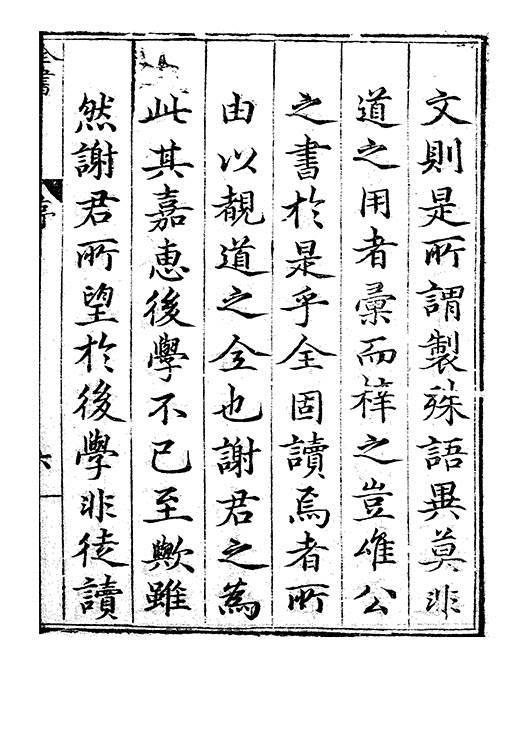 文則是所謂製殊語異莫非
道之用者彚而梓之豈唯公
之書於是乎全固讀焉者所
由以覩道之全也謝君之為
此其嘉惠後學不已至歟雖
然謝君所望於後學非徒讀
全書
序
六